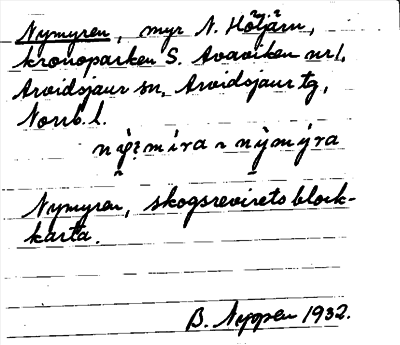 Nymyren, myr N. Hötjärn,
kronoparken S. Avaviken nr 1,
Arvidsjaur sn, Arvidsjaur tg,
Norrb. l.
Nymyren, skogsrevirets block-
karta.
B. Nyppen 1932.